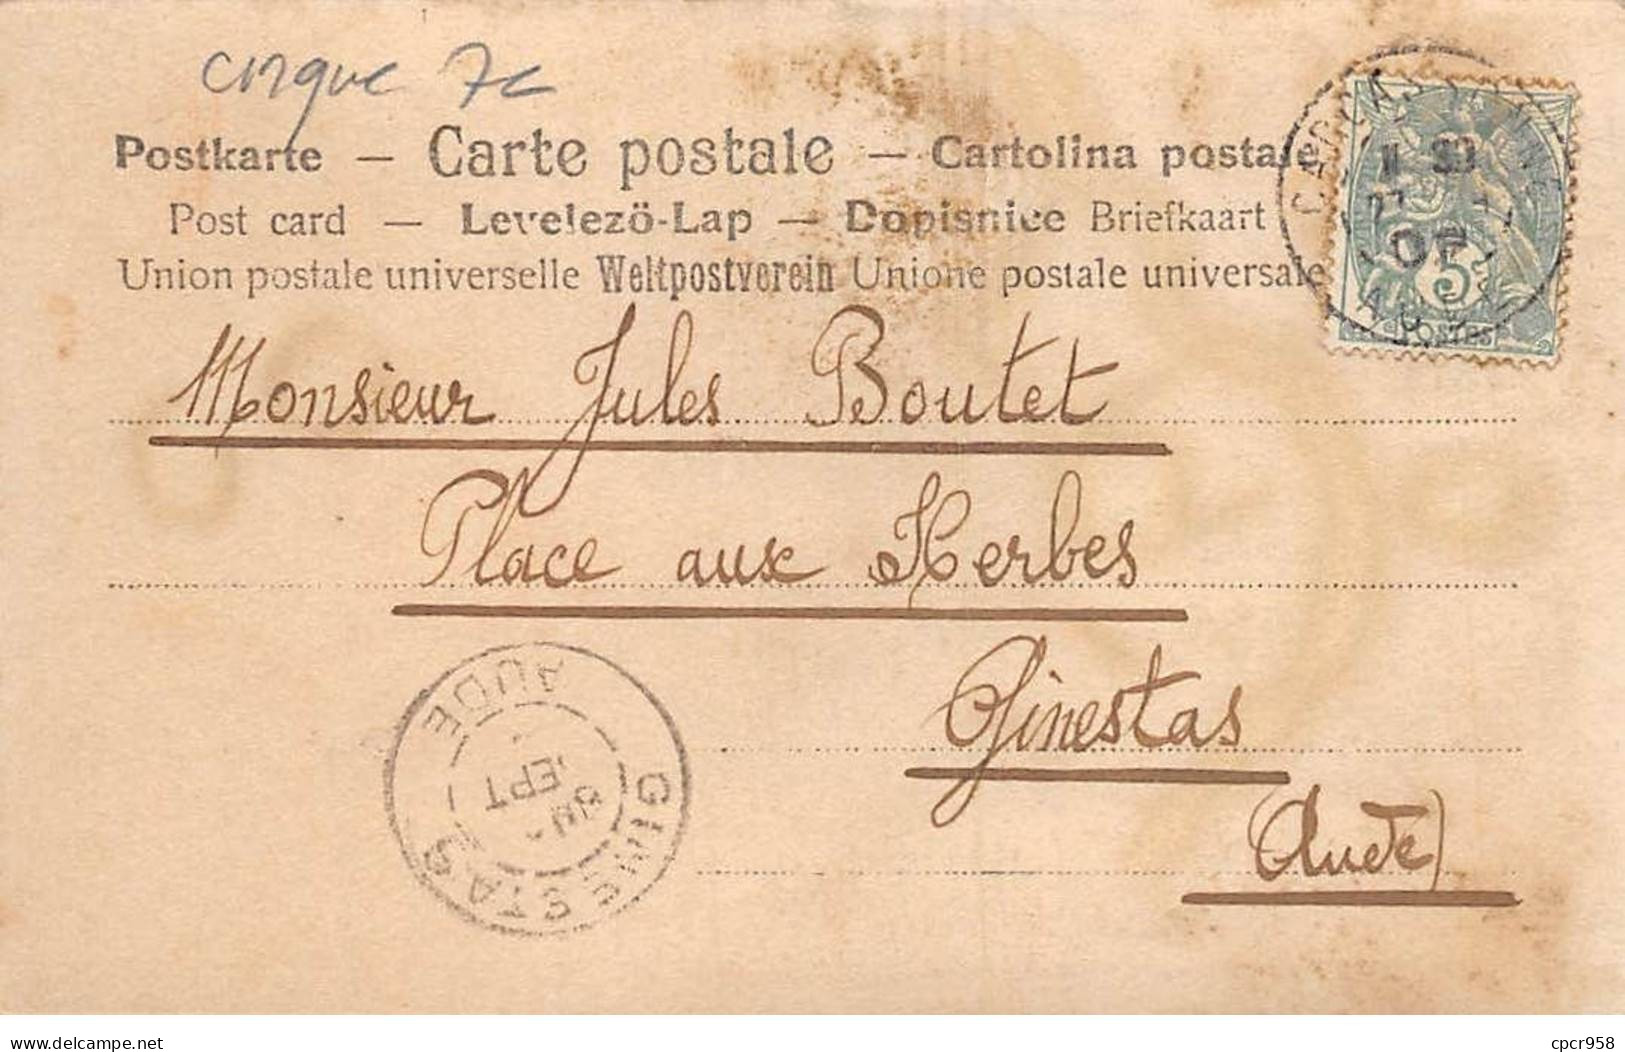 cirque 7c
Postkarte — Carte postale — Cartolina postale
Post card — Levelezö-Lap — Dopisnice Briefkaart
Union postale universelle Weltpostverein Unione postale universale
CARCASSONNE
11 30
27
07
AUDE
5
POSTES
Monsieur Jules Boutet
Place aux Herbes
Ginestas
(Aude)
GINESTAS
SEPT
AUDE
delcampe.net
cpcr958